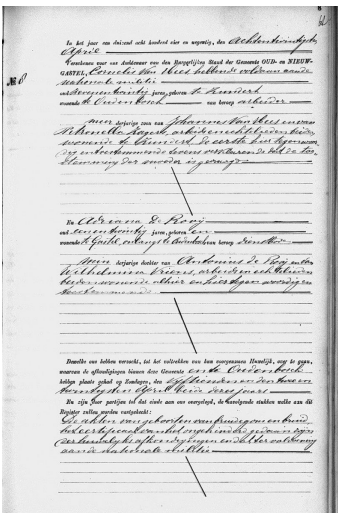 In het jaar een duizend acht honderd vier en negentig, den Achtentwintigsten
April
verscheenen voor ons Ambtenaar van den Burgerlijken Stand der Gemeente OUD- en NIEUW-
GASTEL, Cornelis Van Hees hebbende voldaan aan de
nationale militie
No 8
oud zevenentwintig jaren, geboren te Zundert
wonende te Oudenbosch van beroep arbeider
meerderjarige zoon van Johannes Van Hees en van
Petronella arbeiders echtelieden beiden
wonende te Zundert de eerste hier tegenwoor
dig en toestemmende
stemming der moeder is
En Adriana De Rooij
oud eenentwintig jaren, geboren en
wonende te Gastel, van beroep dienstbode
minderjarige dochter van Antonius de Rooij en van
Wilhelmina arbeiders echtelieden
beiden wonende alhier en hier tegenwoordig en
toestemmende
Dewelke ons hebben verzocht, tot het voltrekken van hun voorgenomen Huwelijk, over te gaan,
waarvan de afkondigingen binnen deze Gemeente en te Oudenbosch
hebben plaats gehad op Zondagen, den vijftienden en den tweeen
twintigsten April beide dezes jaars
En zijn door partijen tot dat einde aan ons overgelegd, de navolgende stukken welke aan dit
Register zullen worden vastgehecht:
De akten van geboorten van bruidegom en bruid,
het certificaat van het ongehinderd gedaan zijn
der huwelijks afkondigingen en dat ter voldoening
aan de nationale militie